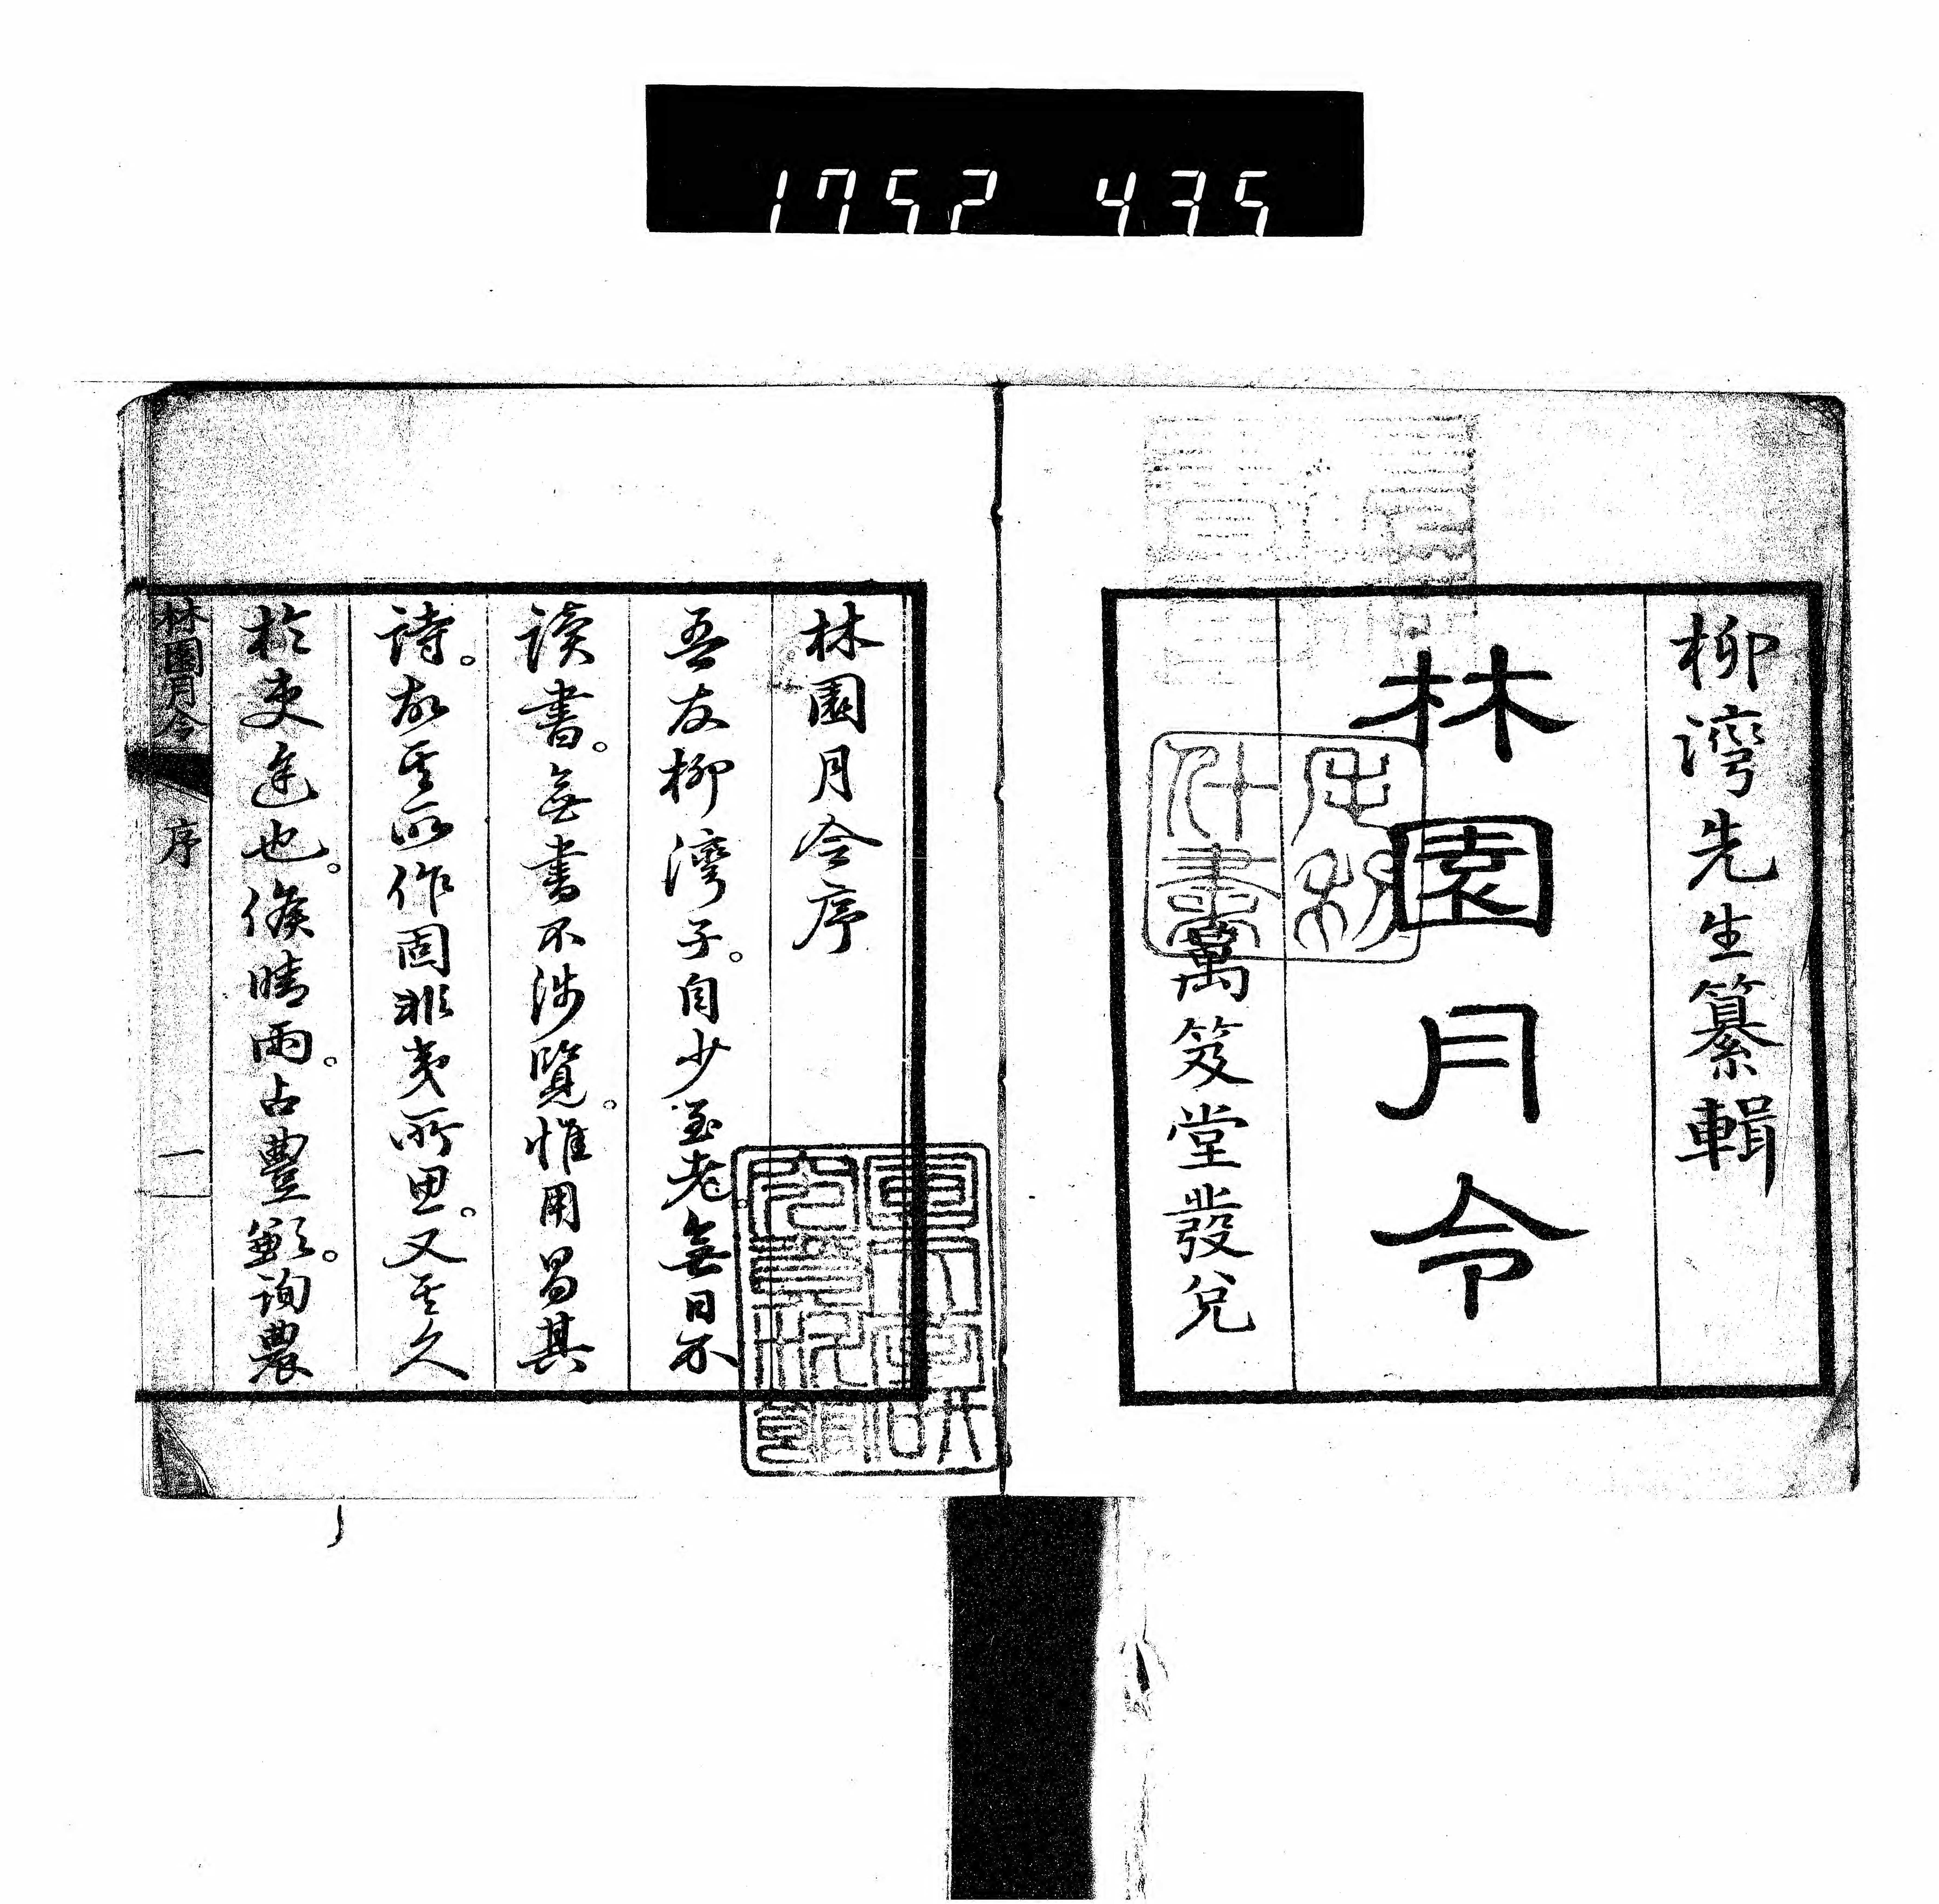 1752 435
柳灣先生纂輯
林園月令
萬笈堂發兌
林園月令序
吾友柳灣子。自少至老。無日不
讀書。無書不涉覽。惟用昌其
詩。故其所作固非夷所思。又其久
於吏途也。候晴雨。占豐歉。詢農
林園月令 序 一